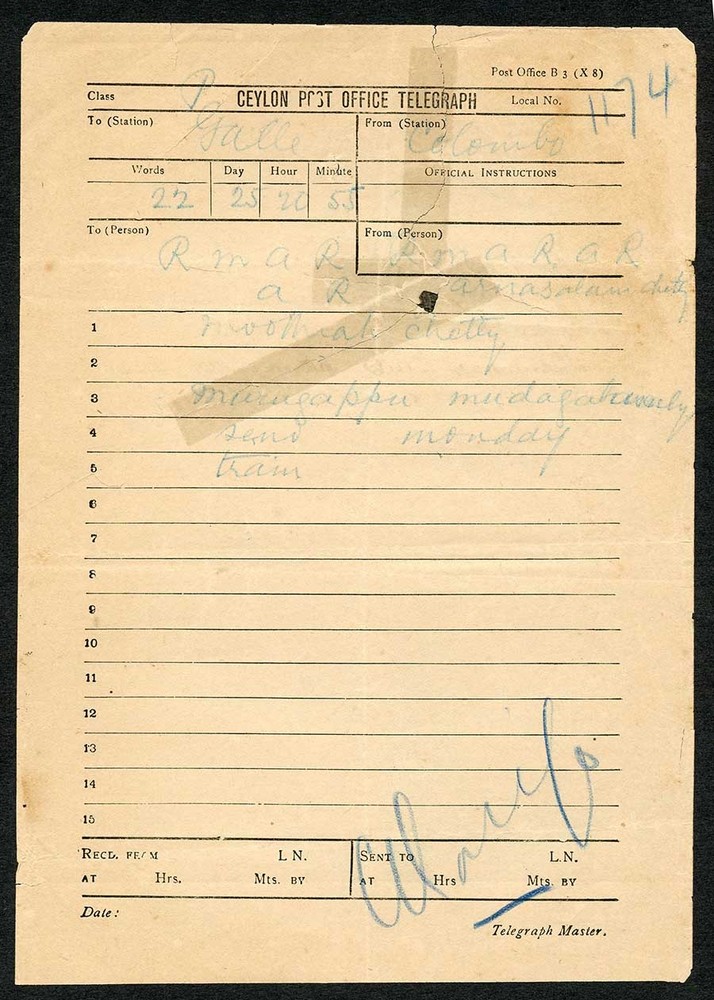 Post Office B 3 (X 8)
Class P CEYLON POST OFFICE TELEGRAPH Local No. 1174
To (Station) Galle From (Station) Colombo
Words Day Hour Minute OFFICIAL INSTRUCTIONS
22 25 20 55
To (Person) From (Person)
R m a R R m a R a R
a R arnasalam chetty
1 moothiah chetty
2
3 murugappa
4 send monday
5 train
6
7
8
9
10
11
12
13
14
15
RECD. FROM L N. SENT TO L N.
AT Hrs. Mts. BY AT Hrs Mts. BY
Date:
Telegraph Master.